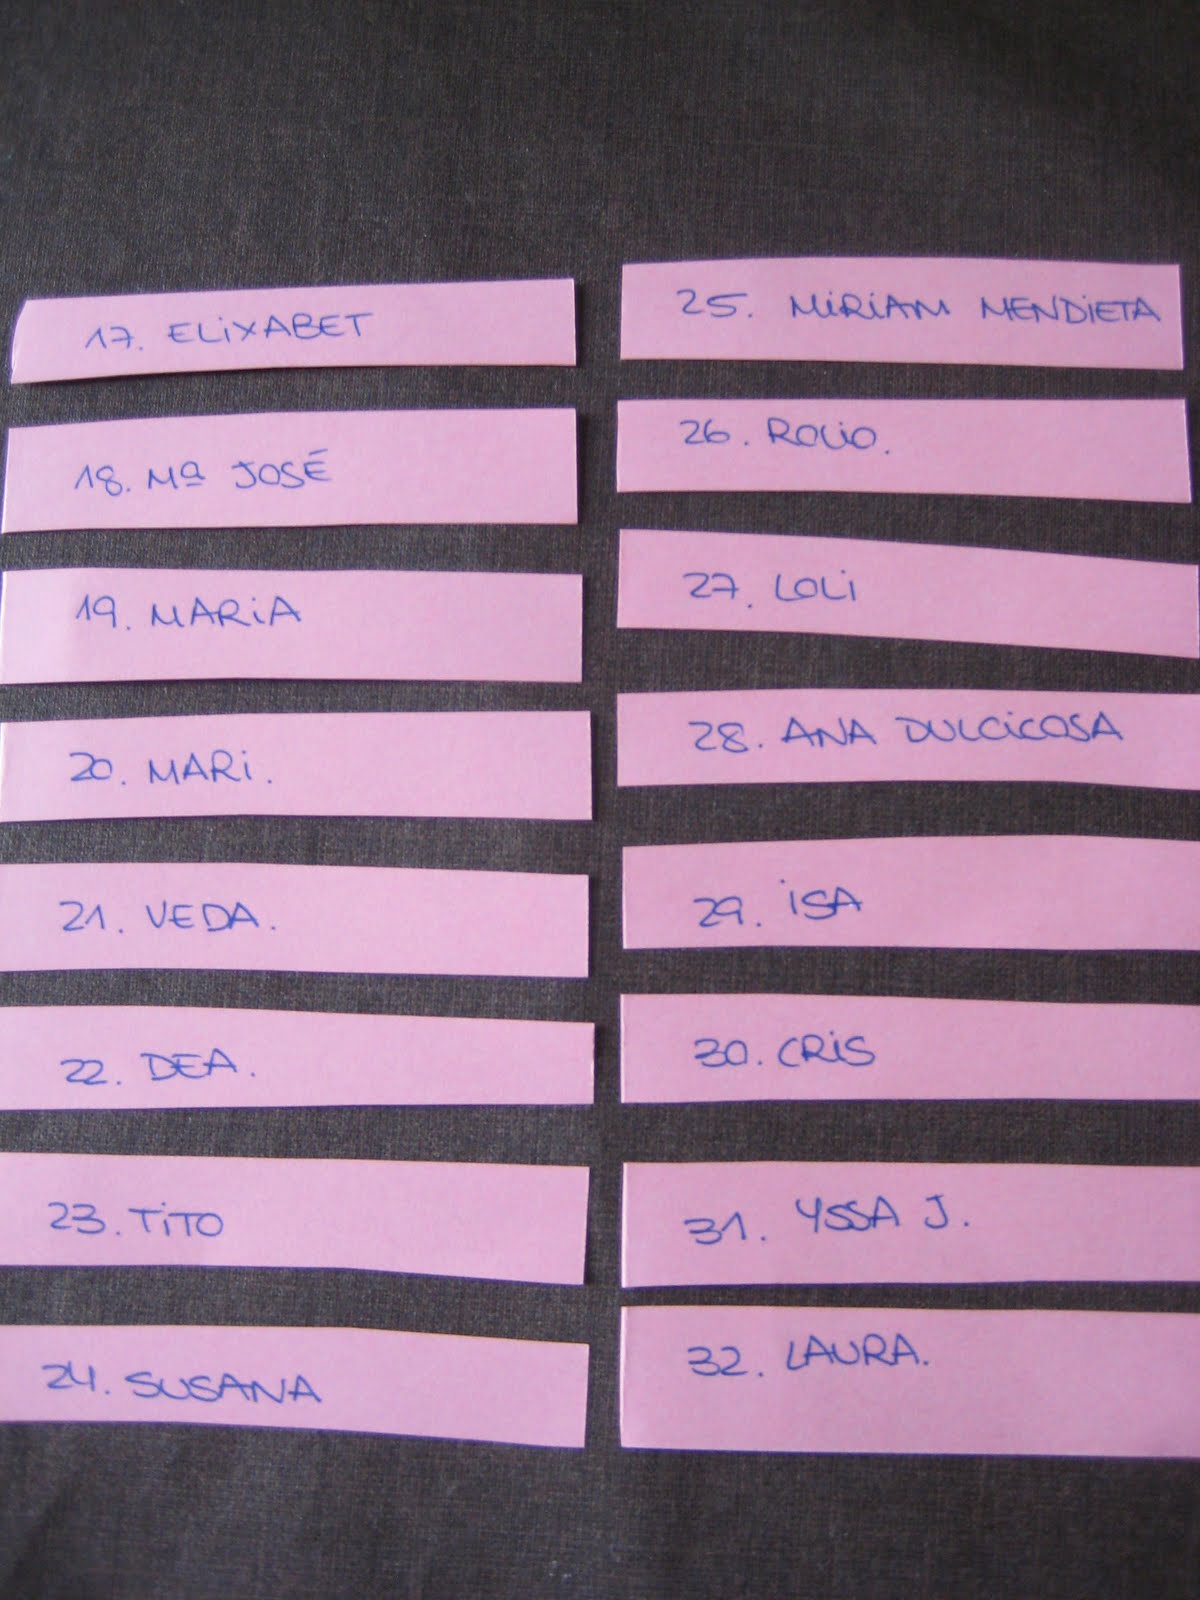 17. ELiXABET
18. Mª JOSÉ
19. MARiA
20. MARi.
21. VEDA.
22. DEA.
23. TiTO
24. SUSANA
25. MiRiAM MENDiETA
26. ROCiO.
27. LOLi
28. ANA DULCiCOSA
29. iSA
30. CRiS
31. YSSA J.
32. LAURA.